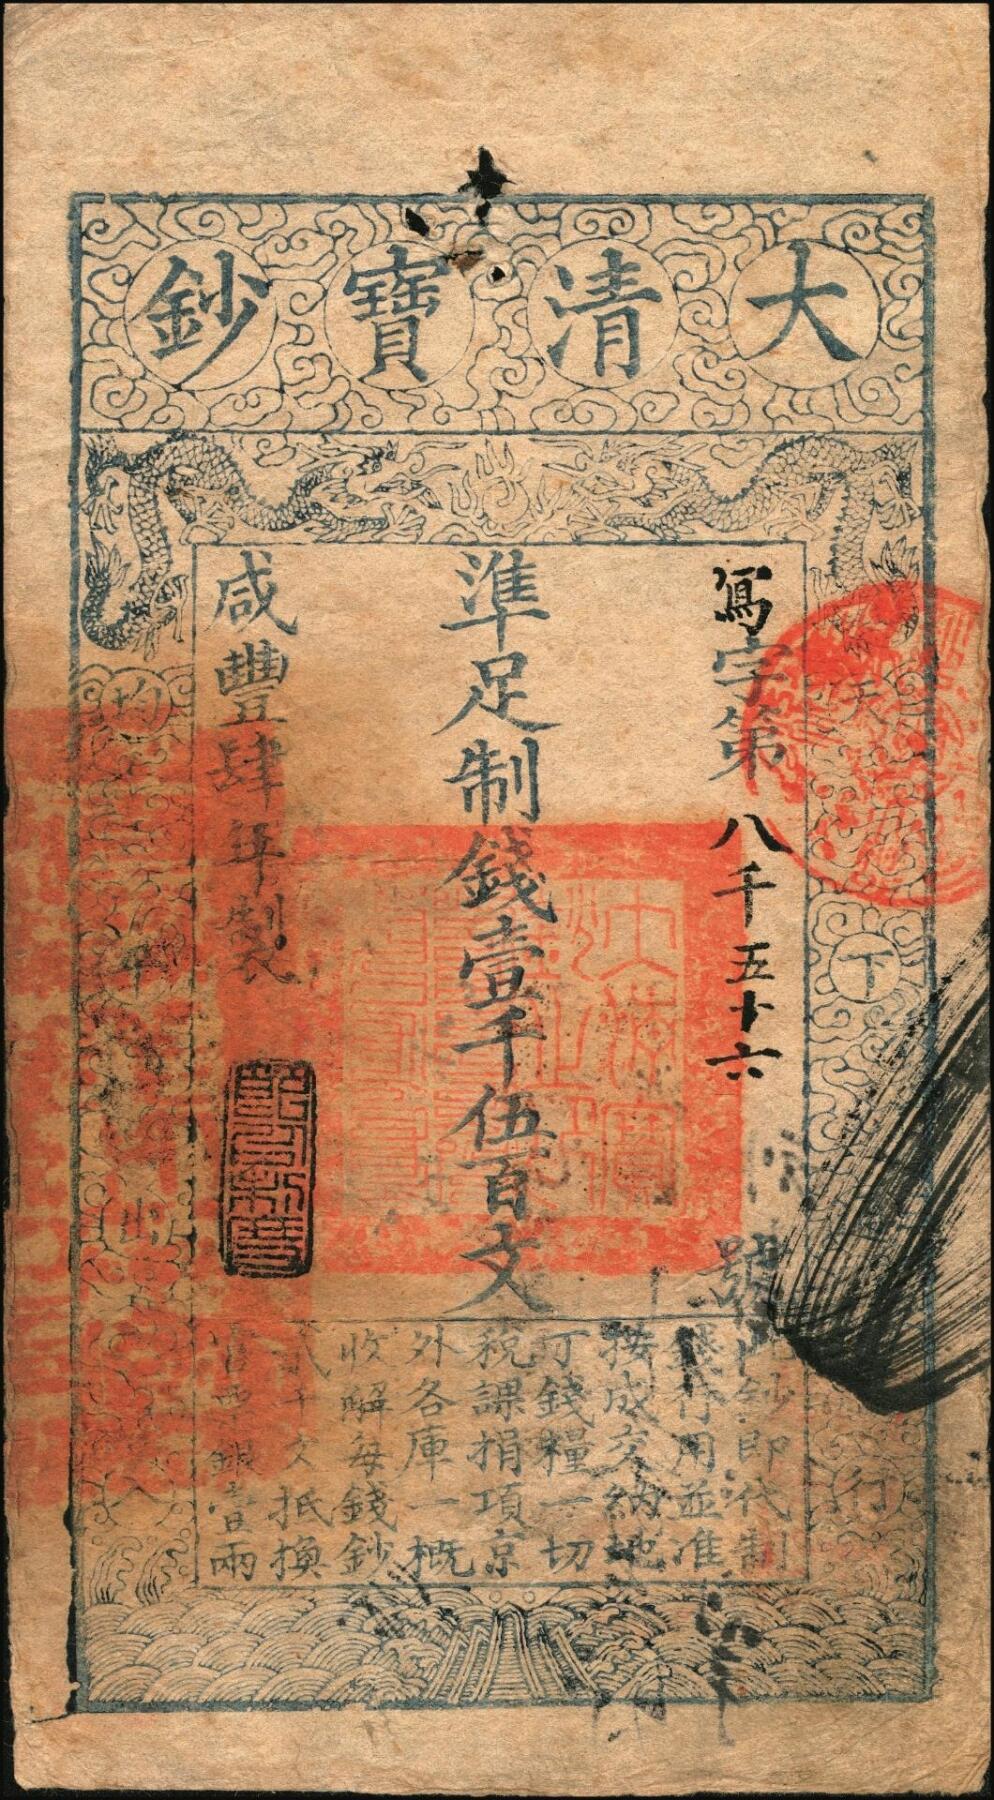 大清寶鈔
天
下
行
寫字第八千五十六號
準足制錢壹千伍百文
咸豐肆年製
均
平
出
入
此鈔即代制
錢行用並准
按成交納地
丁錢糧一切
稅課捐項京
外各庫一概
收解每錢鈔
貳千文抵換
官票銀壹兩